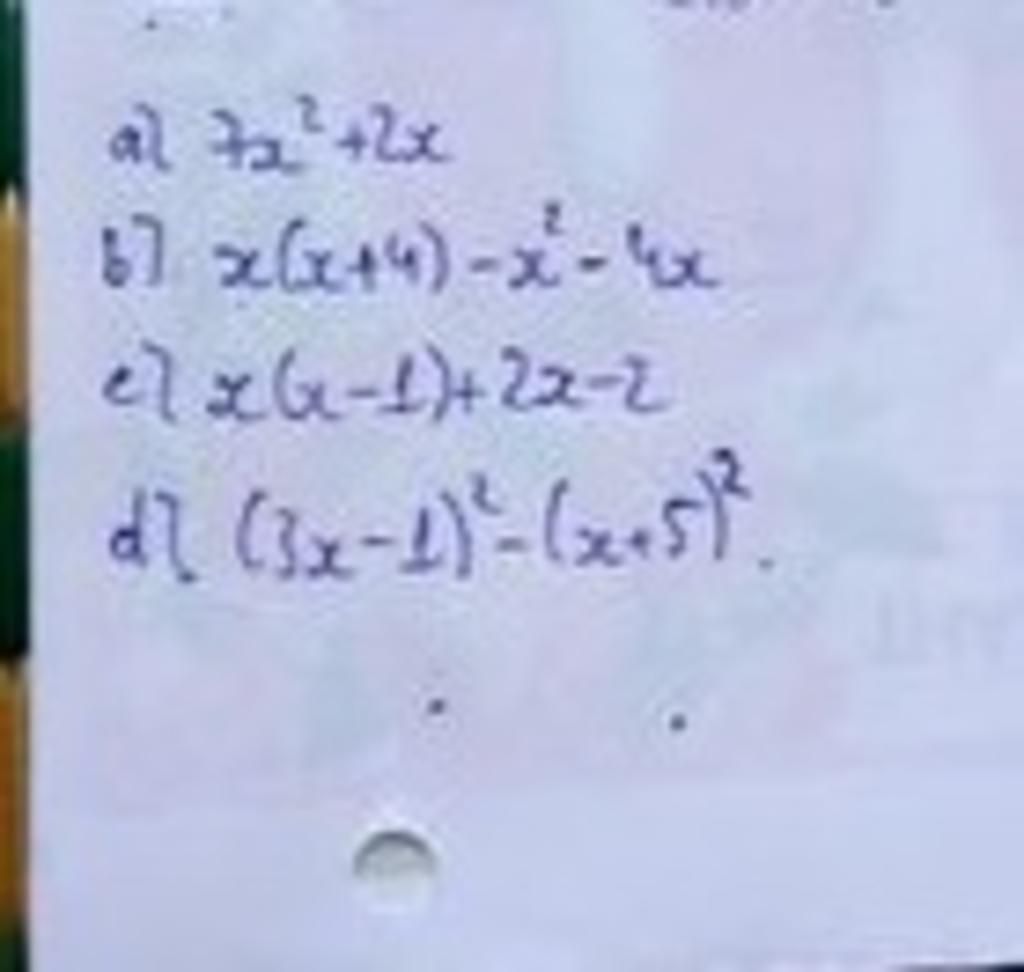 a) 7x² + 2x
b) x(x+4) - x² - 4x
c) x(x-1) + 2x - 2
d) (3x-1)² - (x+5)².